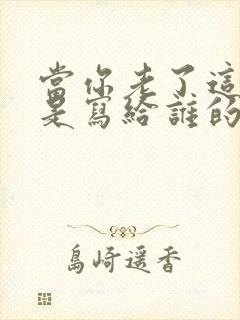 當你老了這
是寫給誰的
島崎遥香